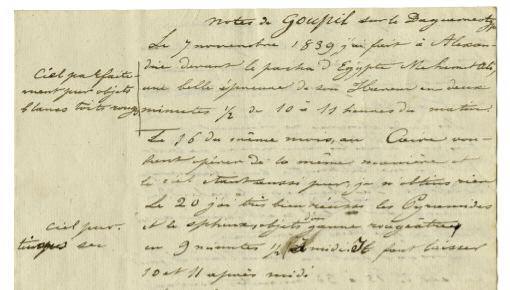 notes de Goupil sur le Daguerreotype
Le 7 novembre 1839 j'ai fait à Alexan-
drie devant le pacha d'Egypte Mehemet Ali,
une belle épreuve de son Hareem en deux
minutes ½ de 10 à 11 heures du matin.
Ciel parfaite-
ment pur objets
blancs toits rouges
Le 16 du même mois, au Caire vou-
lant opérer de la même manière et
le ciel étant aussi pur, je n'obtins rien
Le 20 j'ai très bien réussi les Pyramides
et le sphinx, objets jaune rougeâtres
en 9 minutes ½ à midi. Il faut laisser
10 et 11 après midi
ciel pur.
sec